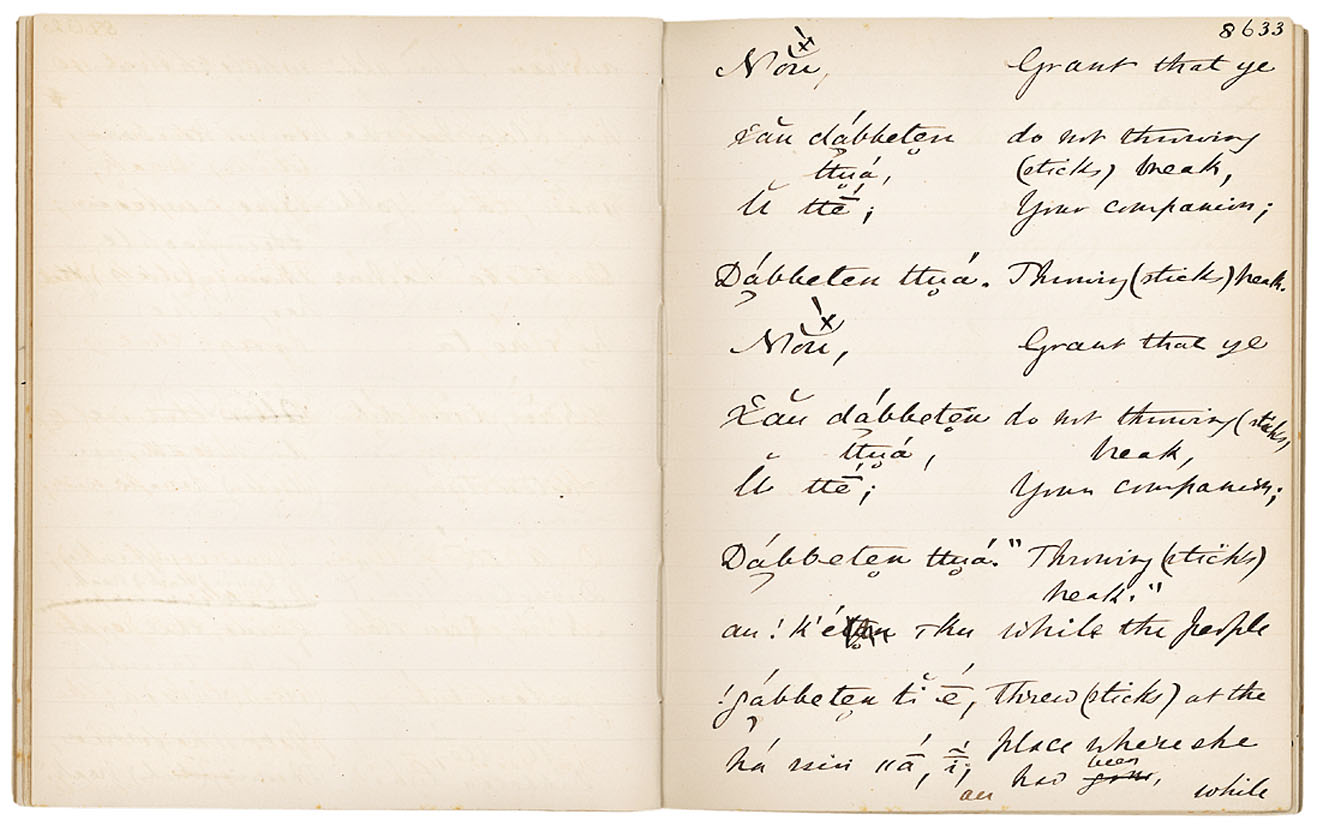 8633
Nŏū, Grant that ye
x̆au dábbeten do not throwing
ttu̥á, (sticks) break,
Ŭ ttḗ; Your companion;
Dábbeten ttu̥á. Throwing (sticks) break.
Nŏū, Grant that ye
X̆au dábbeten do not throwing (sticks)
ttu̥á, break,
Ŭ ttḗ; Your companion;
Dábbeten ttu̥á." Throwing (sticks)
break."
au ! k'é while the people
!gábbeten tĭ ḗ, threw (sticks) at the
há ssin ǁā́, ī; place where she
au had been, while